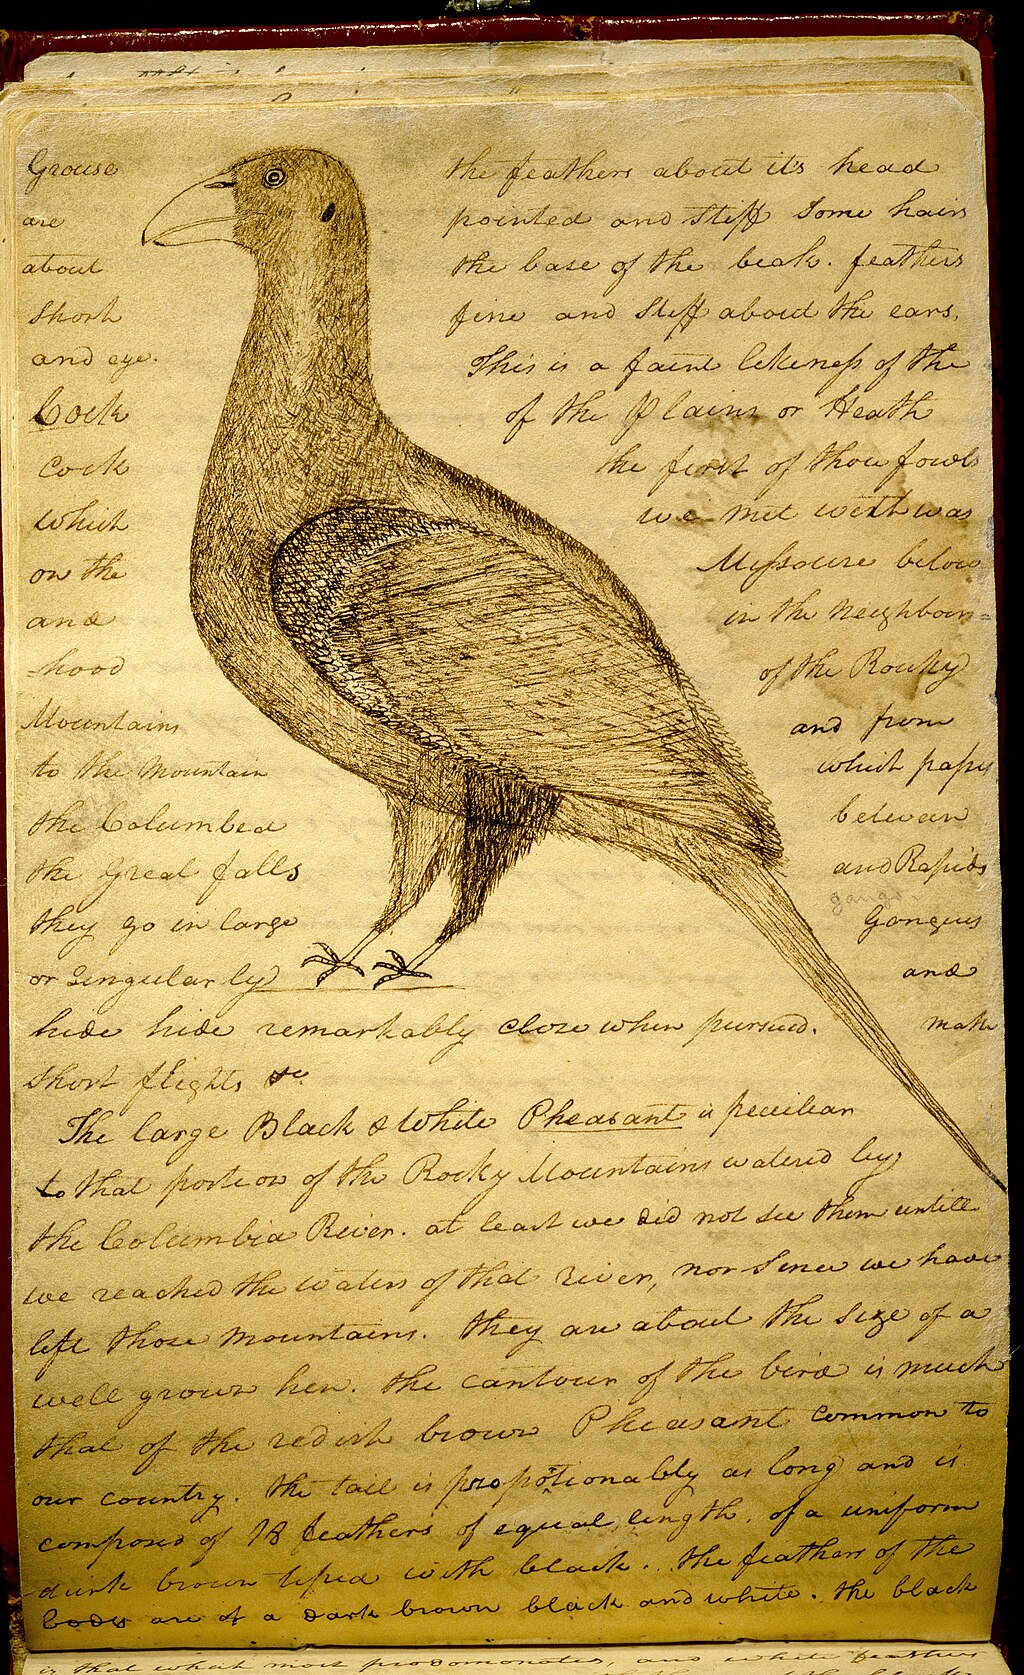 Grouse the feathers about its head
are pointed and stiff Some hairs
about the base of the beak. feathers
Short fine and stiff about the ears,
and eye. This is a faint likeness of the
Cock of the Plains or Heath
Cock the first of those fowls
which we met with was
on the Missourie below
and in the Neighbour=
hood of the Rocky
Mountains and from
to the Mountain which pass
the Columbia between
the Great falls and Rapids
they go in large Gangues
gangs
or Singularly and
hide hide remarkably close when pursued. make
Short flights &c
The large Black & White Pheasant is peculiar
to that portion of the Rocky Mountains watered by
the Columbia River. at least we did not see them untill
we reached the waters of that river, nor Since we have
left those mountains. they are about the Size of a
well grown hen. the contour of the bird is much
that of the redish brown Pheasant common to
our country. the tail is propotionably as long and is
composed of 18 feathers of equal length. of a uniform
dark brown tiped with black. the feathers of the
body are of a dark brown black and white. the black
is that which most and white feathers